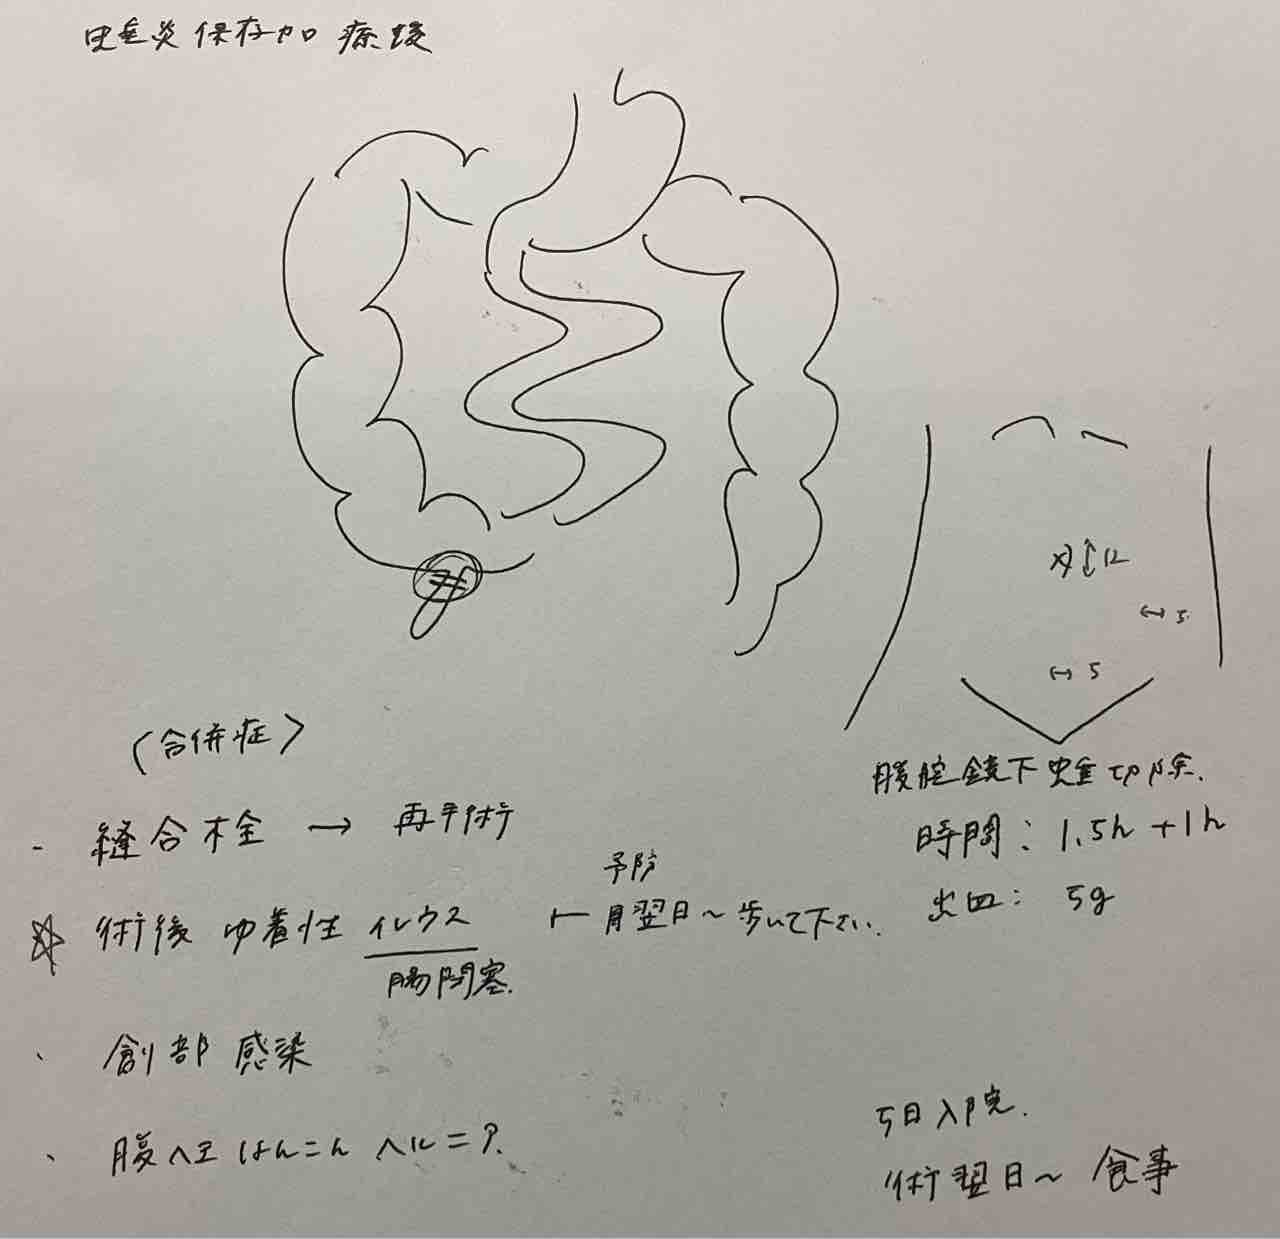 虫垂炎保存加療後
12
5
5
〈合併症〉
腹腔鏡下虫垂切除.
・縫合不全 → 再手術
時間: 1.5h + 1h
予防
☆ 術後 ゆ着性 イレウス ← 翌日〜歩いて下さい.
出血: 5g
腸閉塞.
・創部感染
・腹壁 はんこん ヘルニア.
5日入院.
術翌日〜 食事